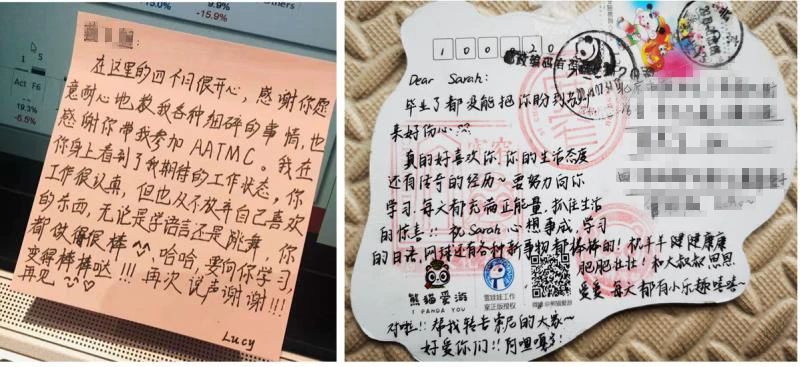 15.0%
9.9%
others
-15.9%
1 5
Act F6
19.3%
-6.5%
在这里的四个月很开心，感谢你愿
意耐心地教我各种细碎的事情，也
感谢你带我参加 AATMC。我在
你身上看到了我期待的工作状态，你
工作很认真，但也从不放弃自己喜欢
的东西，无论是学语言还是跳舞，你
都做得很棒^^，哈哈，要向你学习，
变得棒棒哒!!! 再次说声谢谢!!!
再见
Lucy
1 0 0 0 2 0
Dear Sarah:
毕业了都没能把你盼到
来好伤心
真的好喜欢你！你的生活态度
还有传奇的经历~要努力向你
学习，每天都充满正能量，抓住生活
的惊喜!! 祝Sarah心想事成，学习
的日语、网球还有各种新事物都棒棒的！祝羊羊健健康康
肥肥壮壮！和大叔叔恩恩
爱爱 每天都有小乐趣嘻嘻~
熊猫爱游
I PANDA YOU
雪娃娃工作
室正版授权
微博@熊猫爱游
对啦!! 帮我转告索尼的大家~
好爱你们!!